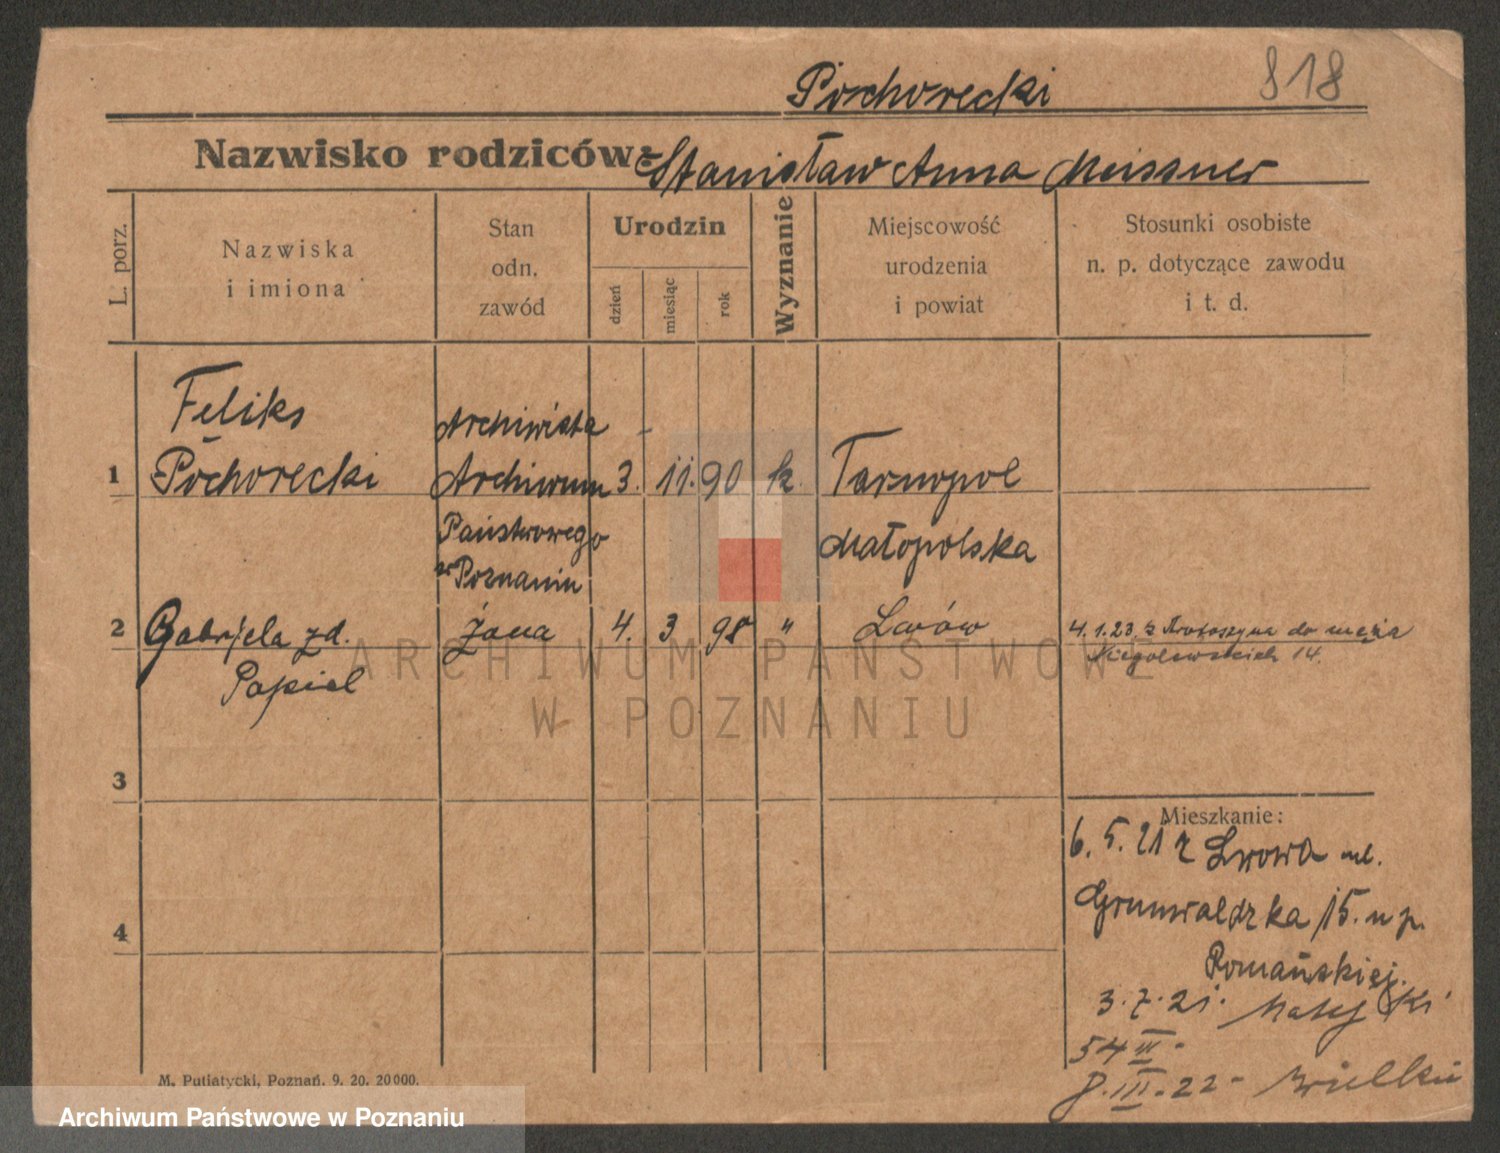 818
Pochorecki
Nazwisko rodziców: Stanisław Anna Meissner
L. porz.
Nazwiska
i imiona
Stan
odn.
zawód
Urodzin
dzień
miesiąc
rok
Wyznanie
Miejscowość
urodzenia
i powiat
Stosunki osobiste
n. p. dotyczące zawodu
i t. d.
1
Feliks
Pochorecki
Archiwista
Archiwum
Państwowego
w Poznaniu
3. 11. 90
k.
Tarnopol
Małopolska
2
Gabrjela zd.
Papiel
Żona
4. 3 98
"
Lwów
4.1.23. z Krotoszyna do męża
Niegolewskich 14.
3
4
Mieszkanie:
6. 5. 21 z Lwowa ul.
Grunwaldzka 15. u p.
Pomańskiej.
3. 7. 21.
54 III
8. III. 22 -
M. Putiatycki, Poznań. 9. 20. 20000.
ARCHIWUM PAŃSTWOWE
W POZNANIU
Archiwum Państwowe w Poznaniu